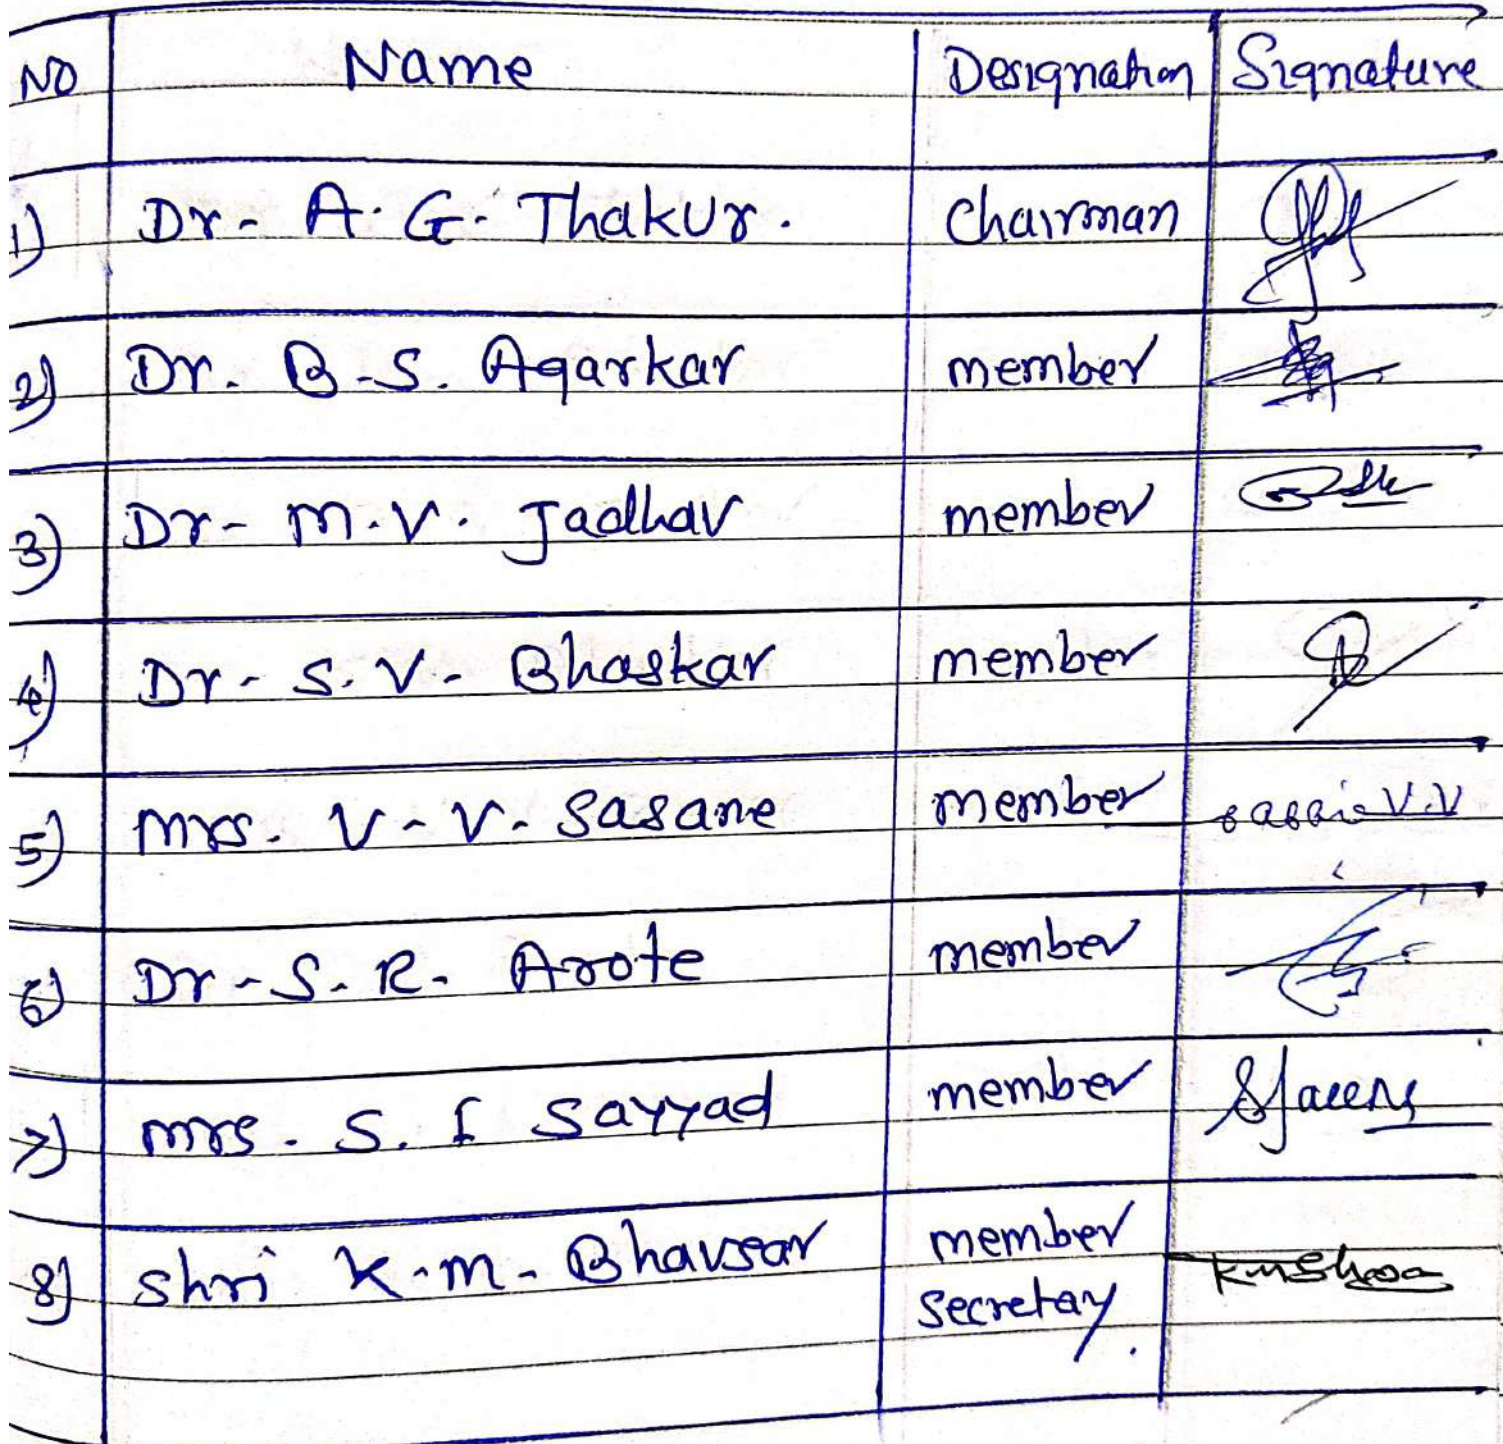 NO Name Designation Signature
1) Dr- A. G. Thakur. Chairman
2) Dr. B-S. Agarkar member
3) Dr- M.V. Jadhav member
4) Dr- S. V- Bhaskar member
5) Mrs. V-V. Sasane member V.V
6) Dr-S. R. Arote member
7) Mrs. S. I Sayyad member
8) Shri K-M- Bhavsar member
secretay.